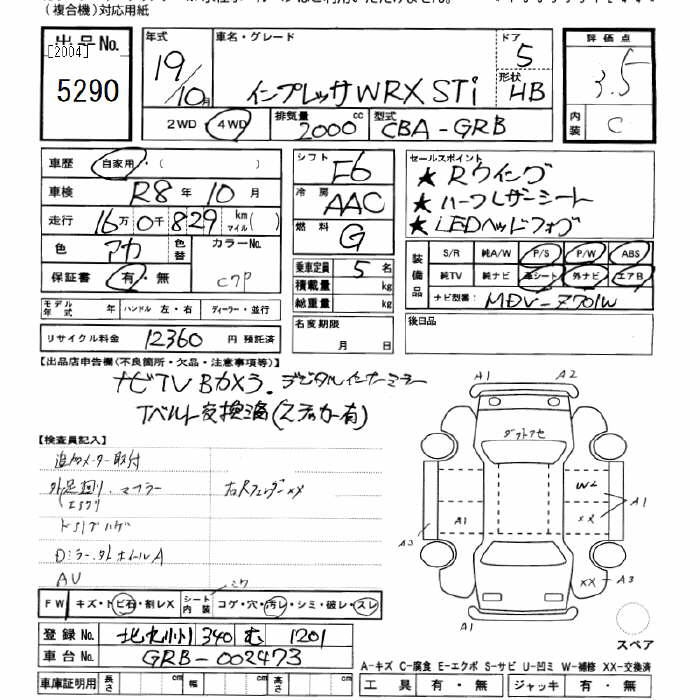 (複合機)対応用紙
出品No.
[2004]
5290
年式 19/10月
車名・グレード インプレッサWRX STi
ドア 5
形状 HB
評価点 3.5
内装 C
2WD・4WD
排気量 2000 cc
型式 CBA-GRB
車歴 自家用・( )
車検 R8年10月
走行 16万0千829 km マイル( )
色 アカ 色替
カラーNo. C7P
保証書 有・無
シフト F6
冷房 AAC
燃料 G
乗車定員 5名
積載量 kg
総重量 kg
名変期限 月 日
セールスポイント
★ Rウイング
★ ハーフレザーシート
★ LEDヘッドフォグ
装備品
S/R 純A/W P/S P/W ABS
純TV 純ナビ 革シート 外ナビ エアB
ナビ型番: MDV-Z701W
後日品
モデル年式 年 ハンドル 左・右 ディーラー・並行
リサイクル料金 12360 円 預託済
【出品店申告欄(不良箇所・欠品・注意事項等)】
ナビTV Bカメラ. デジタルインナーミラー
Tベルト交換済(ステッカー有)
【検査員記入】
追加メーター取付
外足廻り、マフラー
右Rフェンダー××
AV
FW キズ・トビ石・割レX
シート内装 コゲ・穴・汚レ・シミ・破レ・スレ
A1 A2
W2
A1
××
A1
A3
×× A3
A1
スペア
登録No. 340 む 1201
車台No. GRB-002473
A-キズ C-腐食 E-エクボ S-サビ U-凹ミ W-補修 XX-交換済
車庫証明用 長さ cm 幅 cm 高さ cm
工具 有・無 ジャッキ 有・無